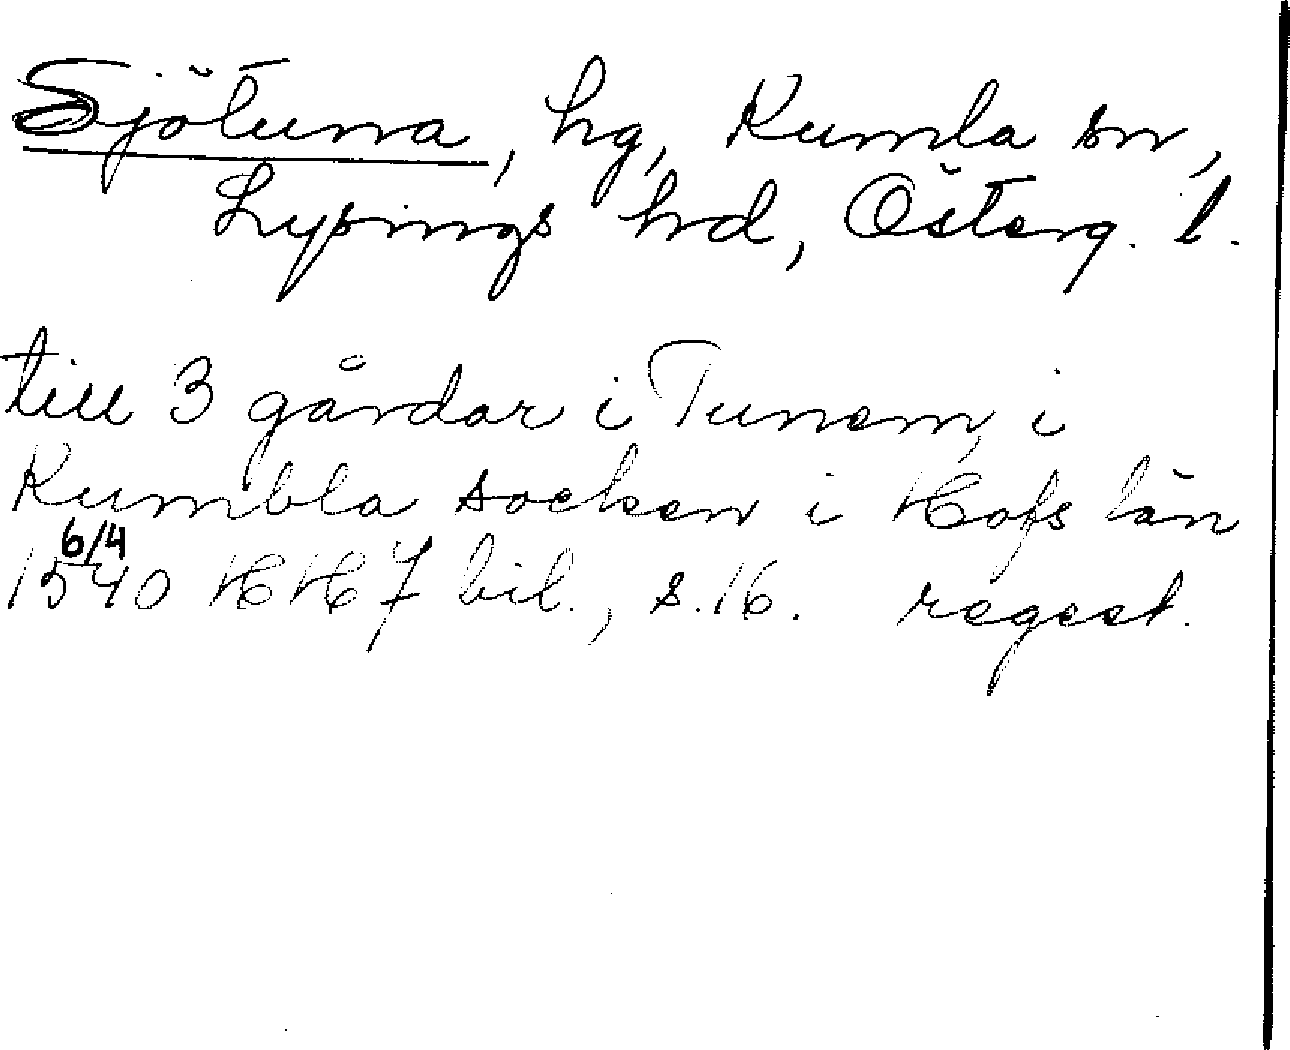 Sjötuna, hg, Kumla sn,
Lysings hd, Österg. l.
till 3 gårdar i Tunem, i
Kumbla socken i Hofs län
6/4
1540 HH 7 bil., s. 16. regest.